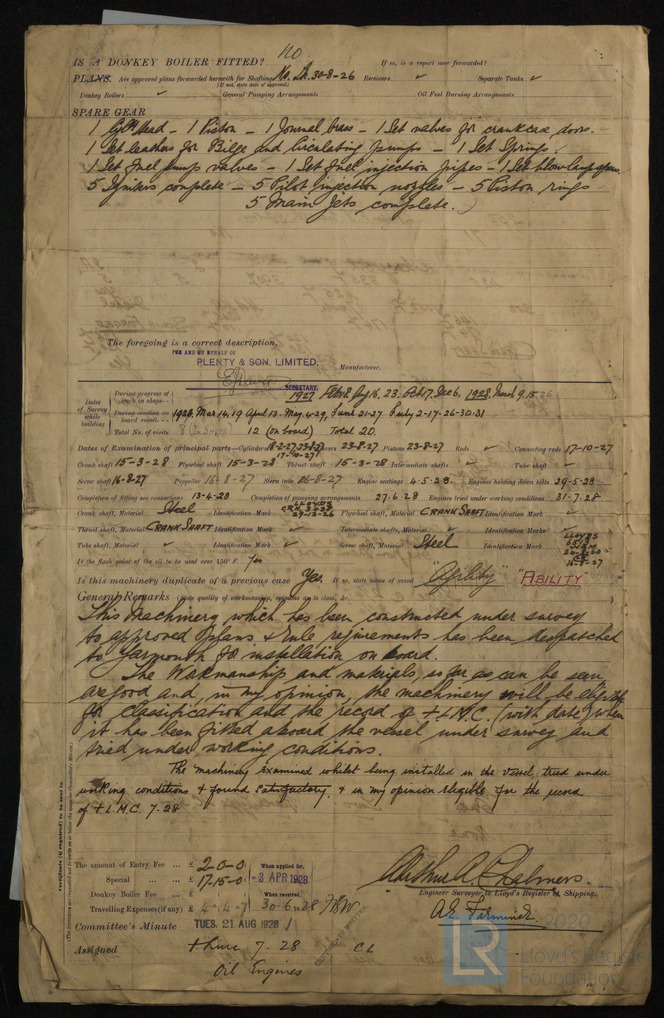 IS A DONKEY BOILER FITTED? no If so, is a report now forwarded?
PLANS. Are approved plans forwarded herewith for Shafting No. 30-8-26 Receivers ✓ Separate Tanks ✓
(If not, state date of approval)
Donkey Boilers ✓ General Pumping Arrangements Oil Fuel Burning Arrangements
SPARE GEAR
1 Cylr head – 1 Piston – 1 Journal brass – 1 Set valves for crankcase doors.
1 Set leathers for Bilge and Circulating pumps – 1 Set Springs.
1 Set fuel pump valves – 1 Set fuel injection pipes – 1 Set blowlamp
5 Igniters complete – 5 Pilot injection nozzles – 5 Piston rings
5 Main Jets complete.
The foregoing is a correct description,
FOR AND ON BEHALF OF
PLENTY & SON, LIMITED, Manufacturer.
SECRETARY.
Dates of Survey while building
During progress of work in shops - - 1927 Feb 8, Aug 16, 23, Oct 17, Dec 6, 1928, March 9, 15
During erection on board vessel - - - 1928. Mar 14, 19 April 13 - May 4-29, June 21-27 July 2-17-26-30-31
Total No. of visits 12 (on board) Total 20.
Dates of Examination of principal parts—Cylinders 18-2-27, 23-8-27 17-10-27 Covers 23-8-27 Pistons 23-8-27 Rods ✓ Connecting rods 17-10-27
Crank shaft 15-3-28 Flywheel shaft 15-3-28 Thrust shaft 15-3-28 Intermediate shafts ✓ Tube shaft ✓
Screw shaft 16-8-27 Propeller 16-8-27 Stern tube 26-8-27 Engine seatings 4-5-28 Engines holding down bolts 29-5-28
Completion of fitting sea connections 13-4-28 Completion of pumping arrangements 27-6-28 Engines tried under working conditions 31-7-28
Crank shaft, Material Steel Identification Mark LLOYDS 29-12-26 Flywheel shaft, Material CRANK SHAFT Identification Mark ✓
Thrust shaft, Material CRANK SHAFT Identification Mark ✓ Intermediate shafts, Material ✓ Identification Marks ✓
Tube shaft, Material ✓ Identification Mark ✓ Screw shaft, Material Steel Identification Mark LLOYDS 16-8-27
Is the flash point of the oil to be used over 150° F. Yes
Is this machinery duplicate of a previous case Yes If so, state name of vessel "Agility" "ABILITY"
General Remarks (State quality of workmanship, opinions as to class, &c.
This Machinery which has been constructed under survey
to approved plans & rule requirements has been despatched
to Yarmouth for installation on board.
The Workmanship and materials, so far as can be seen
are good and, in my opinion, the machinery will be eligible
for classification and the record of + L.M.C. (with date) when
it has been fitted aboard the vessel under survey and
tried under working conditions.
The machinery examined whilst being installed in the vessel, tried under
working conditions & found satisfactory, & in my opinion eligible for the record
of + L.M.C. 7.28
Certificate (if required) to be sent to
The amount of Entry Fee ... £ 2-0-0 When applied for,
Special ... £ 17.15.0 - 3 APR 1928
Donkey Boiler Fee ... £ When received,
Travelling Expenses (if any) £ 4.4.7 30.6.28
Arthur A. Chalmers.
Engineer Surveyor to Lloyd's Register of Shipping.
Committee's Minute TUES. 21 AUG 1928
Assigned + Lmc 7.28 CL
Oil Engines
2020
LR
Lloyd's Register
Foundation